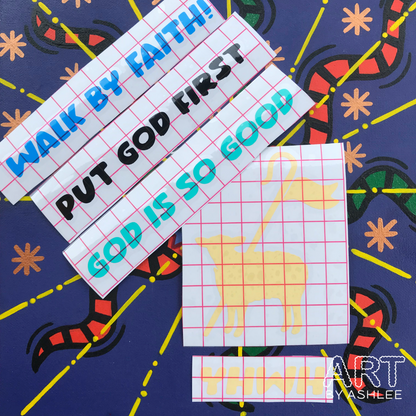 WALK BY FAITH!
PUT GOD FIRST
GOD IS SO GOOD
YAHWEH
ART
BY ASHLEE